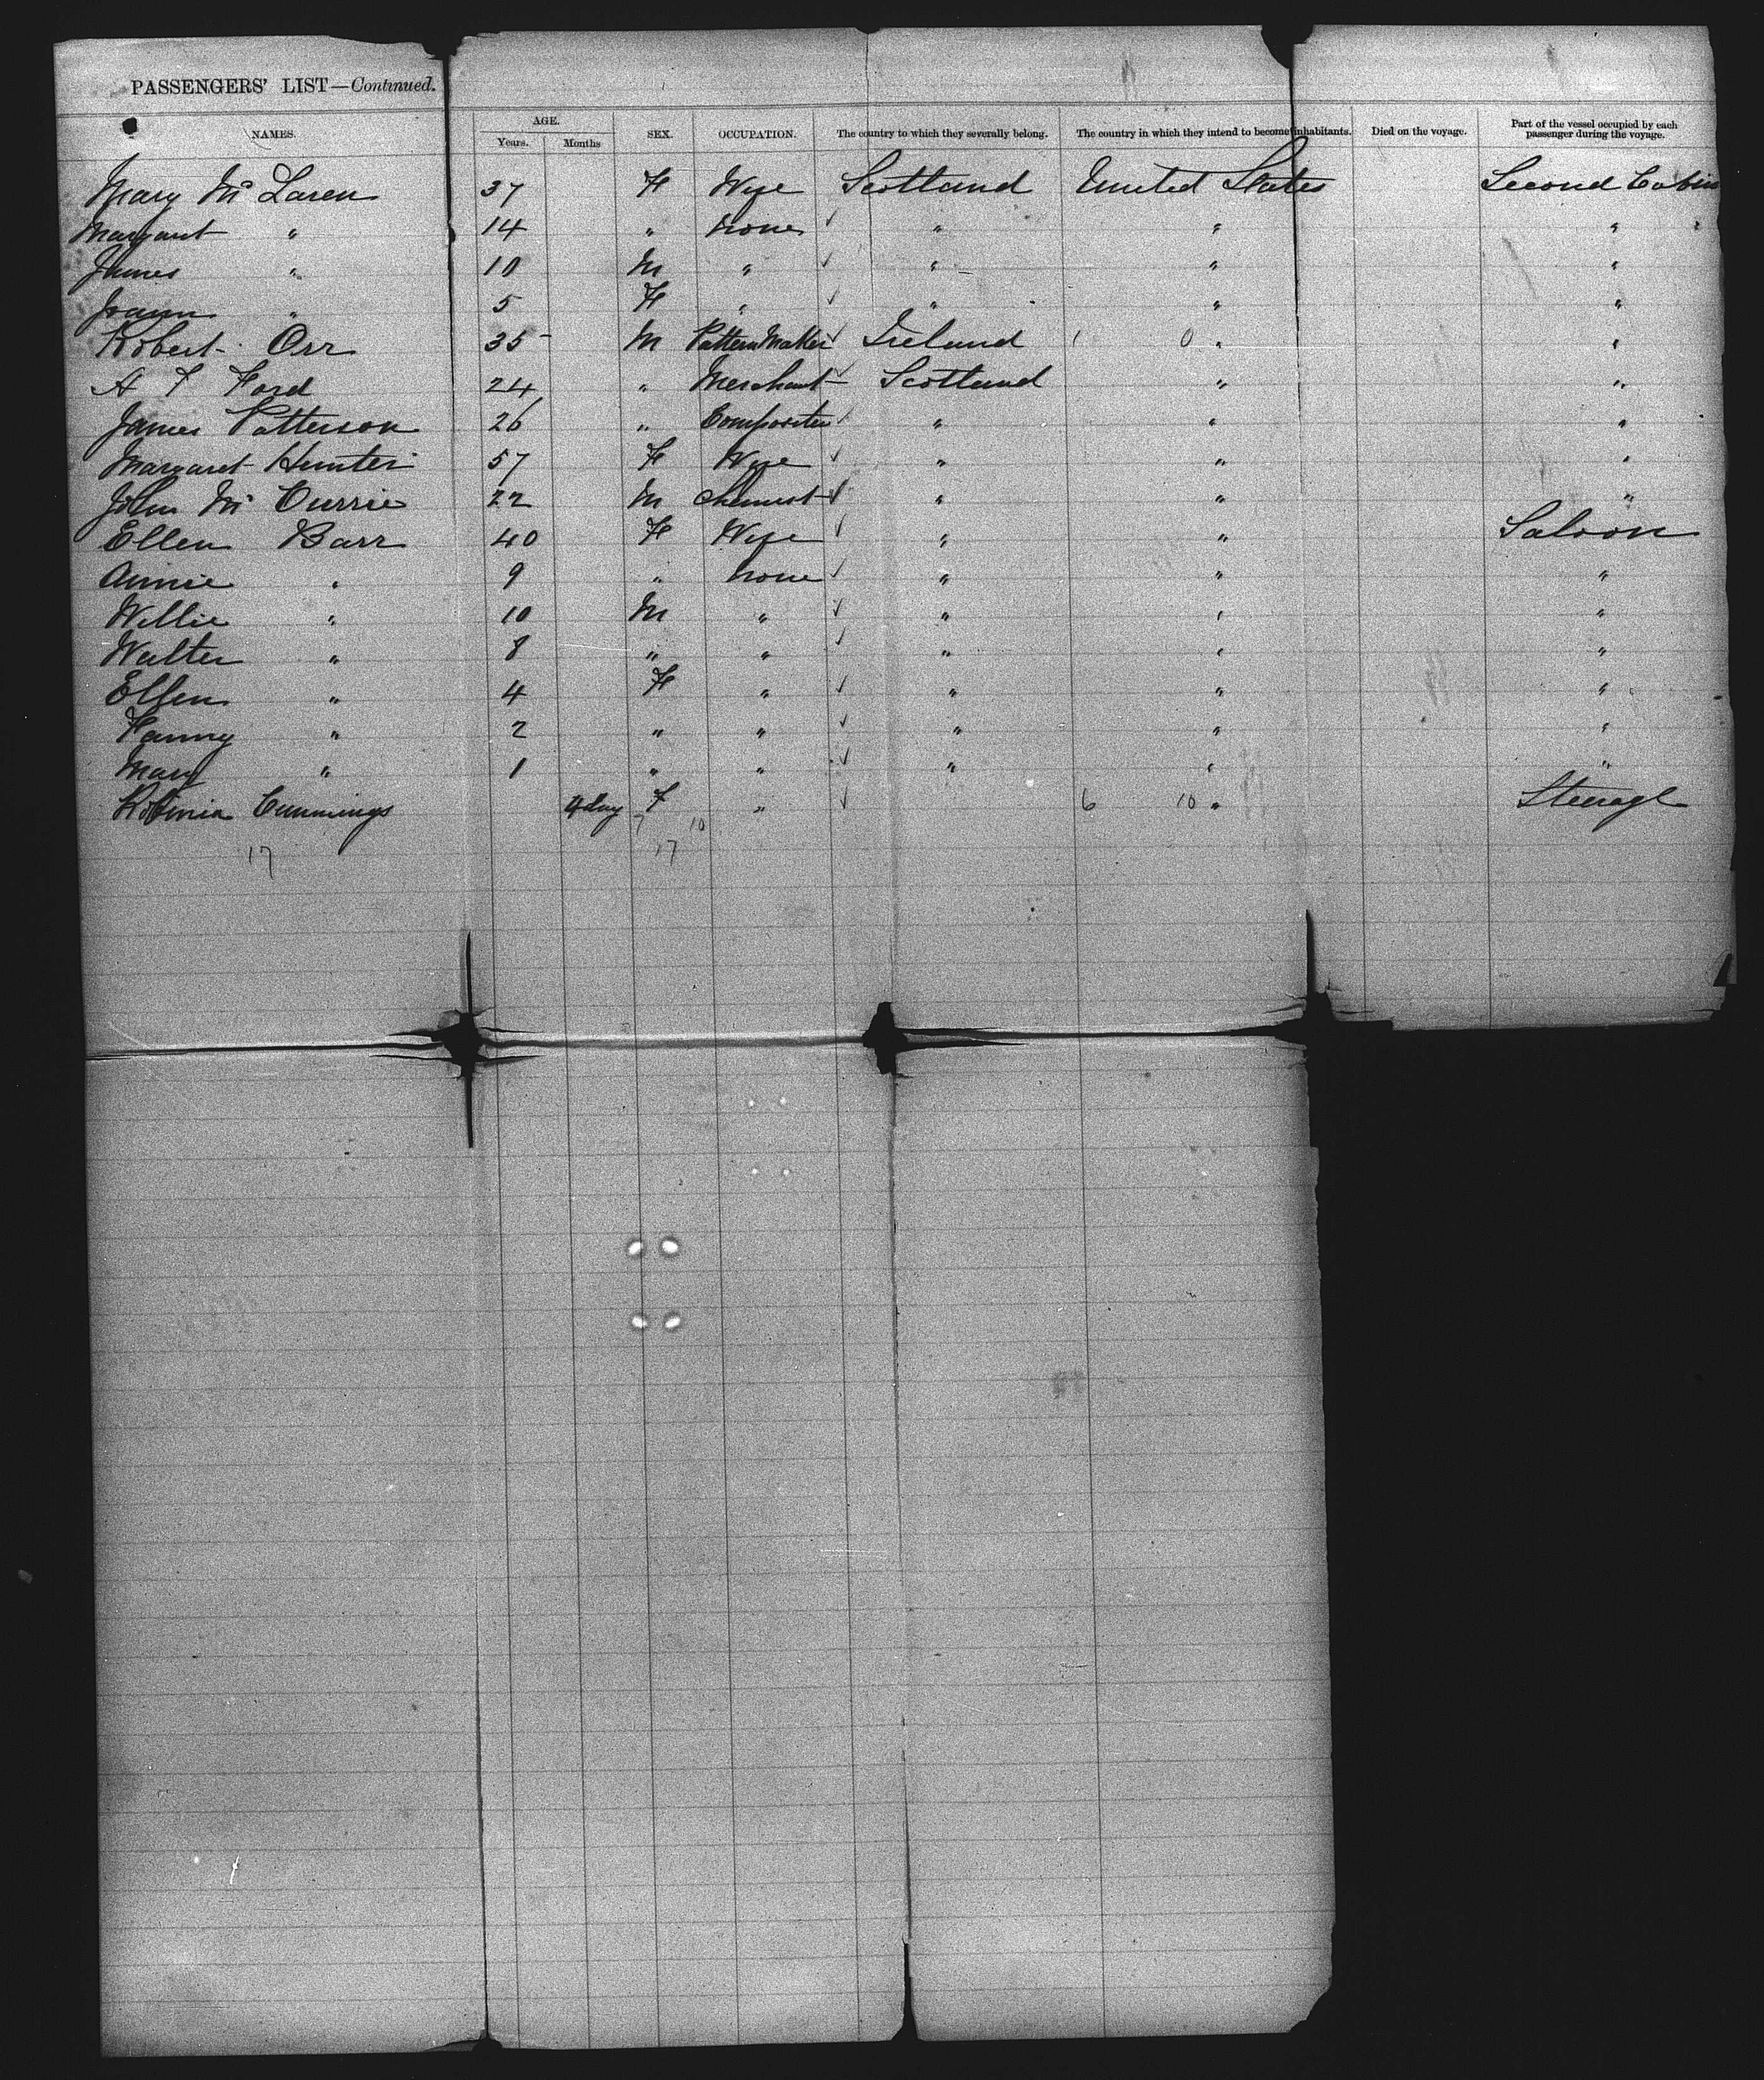 PASSENGERS' LIST—Continued.
NAMES. AGE. Years. Months SEX. OCCUPATION. The country to which they severally belong. The country in which they intend to become inhabitants. Died on the voyage. Part of the vessel occupied by each passenger during the voyage.
Mary Mc Laren 37 F Wife Scotland United States Second Cabin
Margaret " 14 " None ✓ " " "
James " 10 M " ✓ " " "
" 5 F " ✓ " " "
Robert Orr 35 M Pattern Maker ✓ Ireland 1 0 " "
A F Ford 24 " Merchant ✓ Scotland " "
James Patterson 26 " Compositer ✓ " " "
Margaret Hunter 57 F Wife ✓ " " "
John Mc Currie 22 M Chemist ✓ " " "
Ellen Barr 40 F Wife ✓ " " Saloon
Annie " 9 " None ✓ " " "
Willie " 10 M " ✓ " " "
Walter " 8 " " ✓ " " "
Ellen " 4 F " ✓ " " "
Fanny " 2 " " ✓ " " "
Mary " 1 " " ✓ " " "
Robinia Cummings 4 day F " ✓ 6 10 " Steerage
7 10
17 17